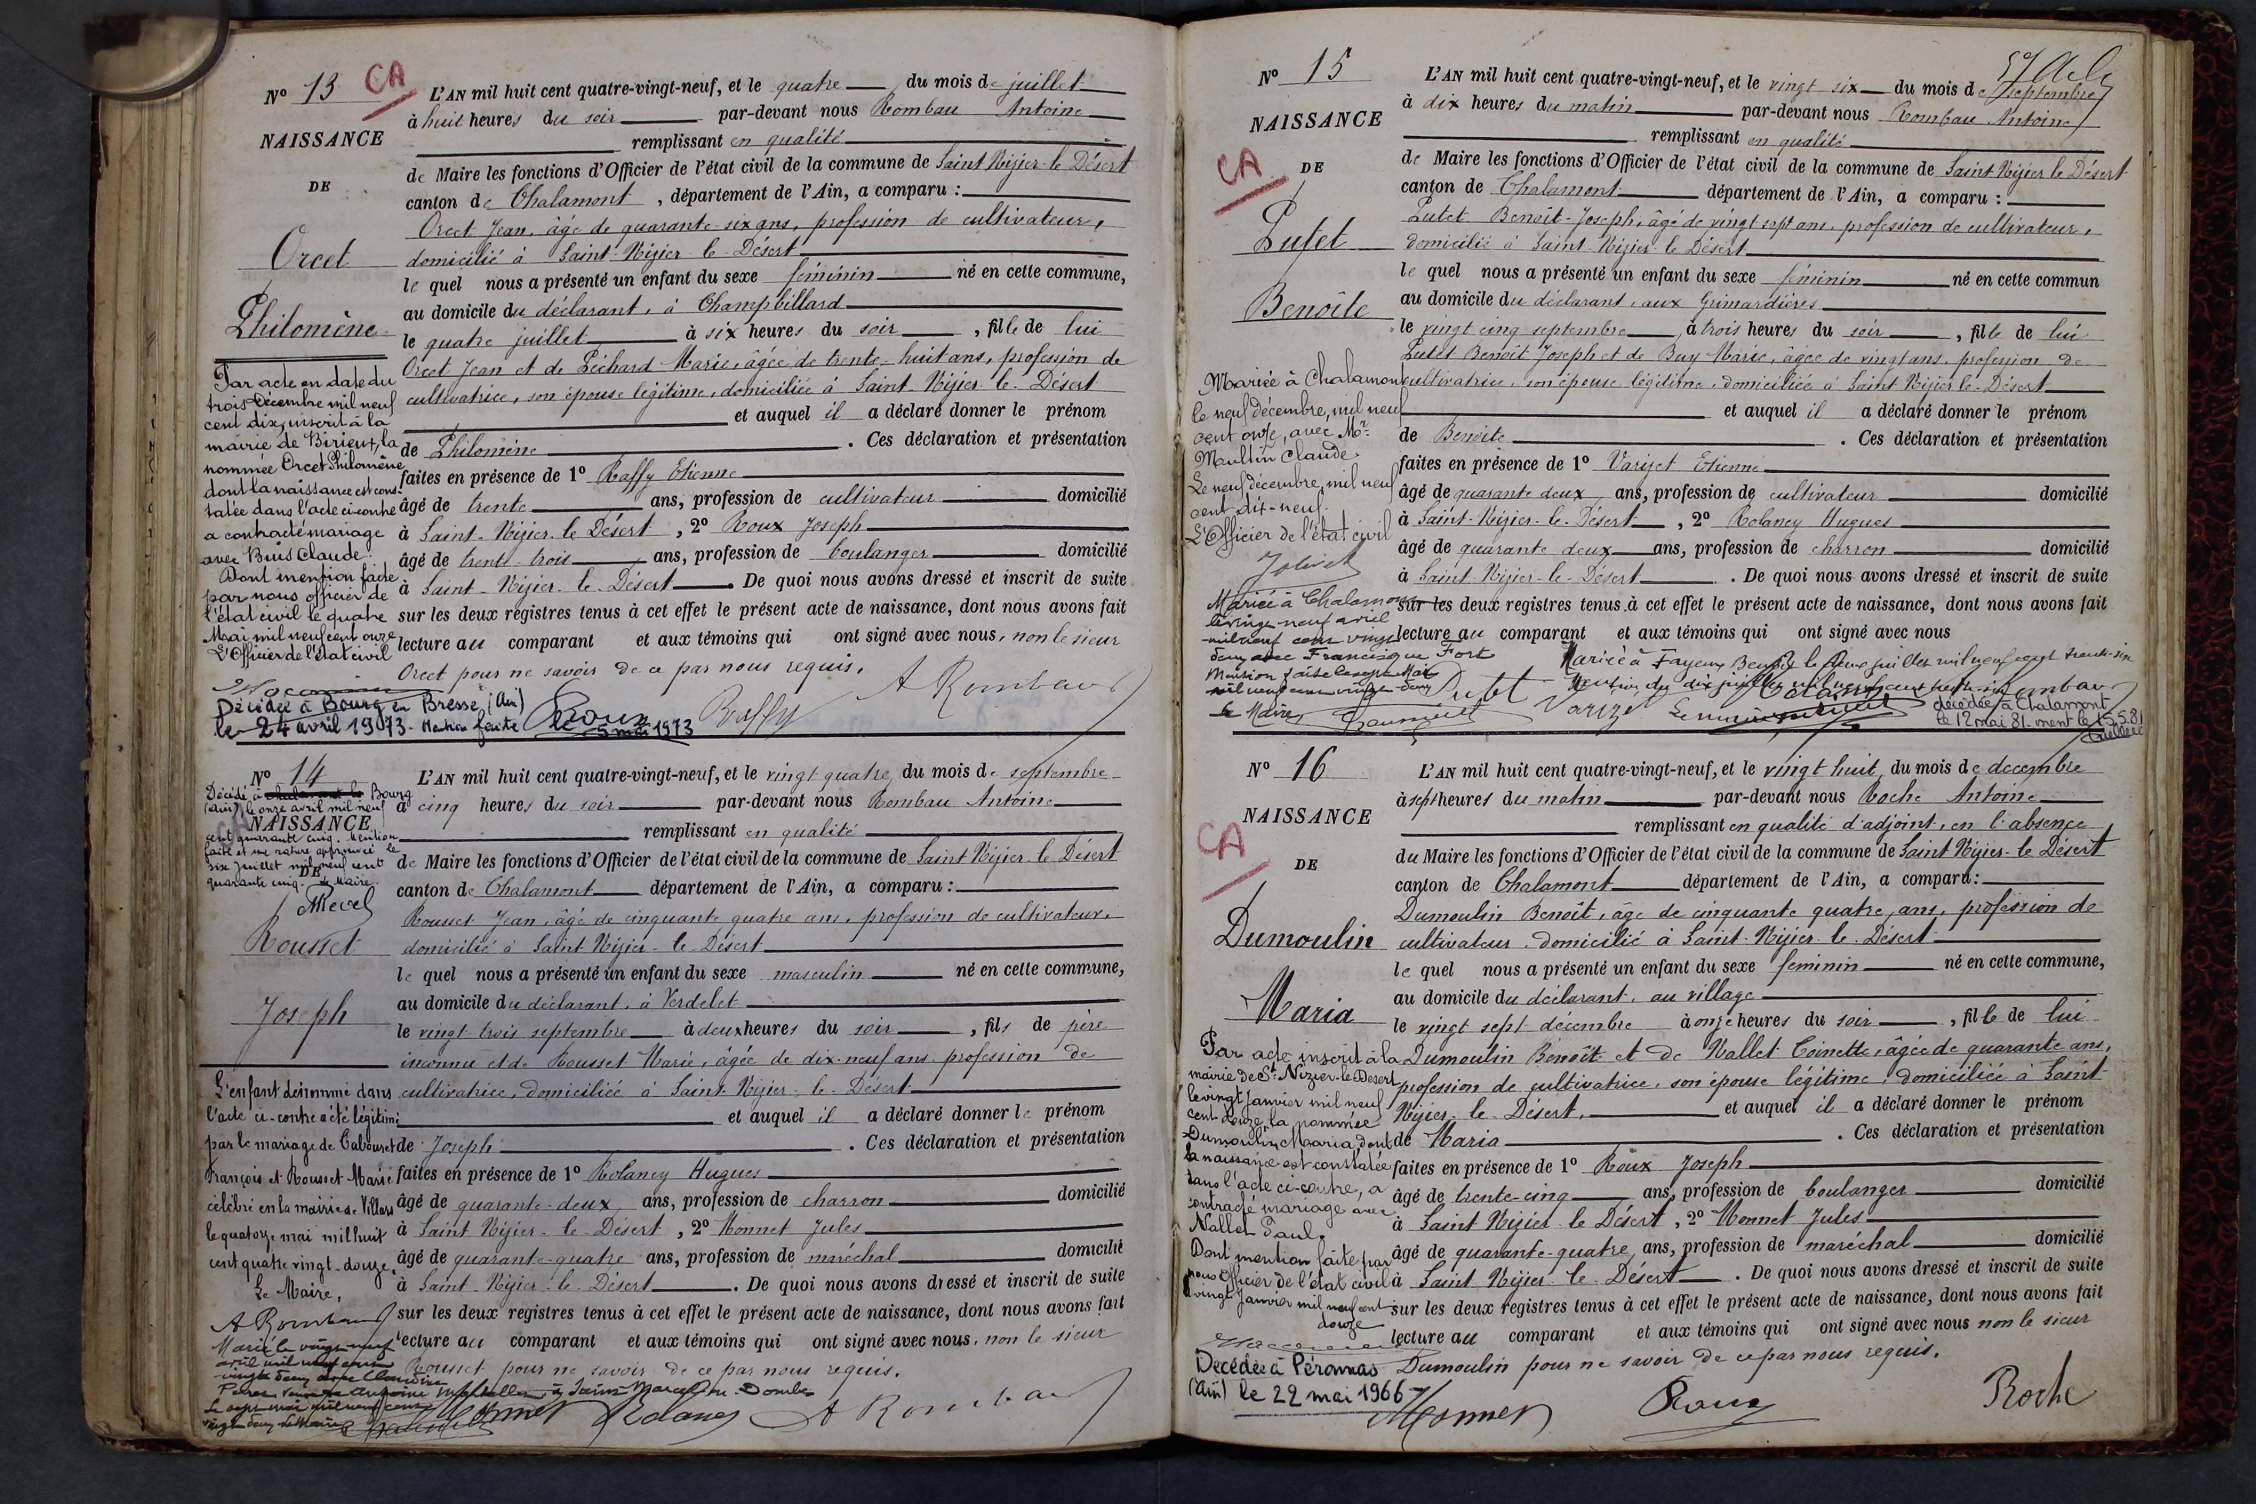 Nº 13
CA
NAISSANCE
DE
Orcet
Philomène
L'AN mil huit cent quatre-vingt-neuf, et le quatre du mois de juillet
à huit heures du soir par-devant nous Rombau Antoine
remplissant en qualité
de Maire les fonctions d'Officier de l'état civil de la commune de Saint Nizier-le Désert
canton de Chalamont, département de l'Ain, a comparu :
Orcet Jean, âgé de quarante six ans, profession de cultivateur,
domicilié à Saint-Nizier-le-Désert
le quel nous a présenté un enfant du sexe féminin né en cette commune,
au domicile du déclarant, à Champbillard
le quatre juillet à six heures du soir, fille de lui
Orcet Jean et de Péchard Marie, âgée de trente-huit ans, profession de
cultivatrice, son épouse légitime, domiciliée à Saint-Nizier-le-Désert
et auquel il a déclaré donner le prénom
de Philomène. Ces déclaration et présentation
faites en présence de 1º Raffy Etienne
âgé de trente ans, profession de cultivateur domicilié
à Saint-Nizier-le Désert, 2º Roux Joseph
âgé de trente-trois ans, profession de boulanger domicilié
à Saint-Nizier-le-Désert. De quoi nous avons dressé et inscrit de suite
sur les deux registres tenus à cet effet le présent acte de naissance, dont nous avons fait
lecture au comparant et aux témoins qui ont signé avec nous, non le sieur
Orcet pour ne savoir de ce par nous requis.
A Rombau
Roux Raffy
Par acte en date du
trois Décembre mil neuf
cent dix, inscrit à la
mairie de Birieux, la
nommée Orcet Philomène
dont la naissance est cons-
tatée dans l'acte ci-contre
a contracté mariage
avec Buis Claude.
Dont mention faite
par nous officier de
l'état civil le quatre
Mai mil neuf cent onze
L'Officier de l'état civil
Décédée à Bourg en Bresse (Ain)
le 24 avril 1973. Mention faite le
5 mai 1973
Nº 14
NAISSANCE
DE
Rousset
Joseph
Décédé à Bourg
(Ain), le onze avril mil neuf
cent quarante cinq. Mention
faite et une rature approuvée le
six Juillet mil neuf cent
quarante cinq. Le Maire.
L'AN mil huit cent quatre-vingt-neuf, et le vingt quatre du mois de septembre
à cinq heures du soir par-devant nous Rombau Antoine
remplissant en qualité
de Maire les fonctions d'Officier de l'état civil de la commune de Saint Nizier-le Désert
canton de Chalamont département de l'Ain, a comparu :
Rousset Jean, âgé de cinquante quatre ans, profession de cultivateur,
domicilié à Saint Nizier-le-Désert
le quel nous a présenté un enfant du sexe masculin né en cette commune,
au domicile du déclarant, à Verdelet
le vingt trois septembre à deux heures du soir, fils de père
inconnu et de Rousset Marie, âgée de dix-neuf ans, profession de
cultivatrice, domiciliée à Saint-Nizier-le-Désert
et auquel il a déclaré donner le prénom
de Joseph. Ces déclaration et présentation
faites en présence de 1º Rolancy Hugues
âgé de quarante-deux ans, profession de charron domicilié
à Saint Nizier-le-Désert, 2º Monnet Jules
âgé de quarante-quatre ans, profession de maréchal domicilié
à Saint-Nizier-le-Désert. De quoi nous avons dressé et inscrit de suite
sur les deux registres tenus à cet effet le présent acte de naissance, dont nous avons fait
lecture au comparant et aux témoins qui ont signé avec nous, non le sieur
Rousset pour ne savoir de ce par nous requis.
Monnet Rolancy A Rombau
L'enfant dénommé dans
l'acte ci-contre a été légitimé
par le mariage de Cabouret
François et Rousset Marie
célébré en la mairie de Villars
le quatorze mai mil huit
cent quatre vingt-douze.
Le Maire,
A Rombau
Marié le vingt-neuf
avril mil neuf cent
vingt deux avec Claudine
à Saint-Marcel en Dombes
Le sept mai mil neuf cent
vingt deux Le Maire
Nº 15
CA
NAISSANCE
DE
Putet
Benoîte
L'AN mil huit cent quatre-vingt-neuf, et le vingt six du mois de septembre
à dix heures du matin par-devant nous Rombau Antoine
remplissant en qualité
de Maire les fonctions d'Officier de l'état civil de la commune de Saint Nizier le Désert
canton de Chalamont département de l'Ain, a comparu :
Putet Benoît-Joseph, âgé de vingt sept ans, profession de cultivateur,
domicilié à Saint-Nizier-le Désert
le quel nous a présenté un enfant du sexe féminin né en cette commun
au domicile du déclarant, aux Grimardières
le vingt cinq septembre à trois heures du soir, fille de lui
Putet Benoît Joseph et de Buy Marie, âgée de vingt ans, profession de
cultivatrice, son épouse légitime, domiciliée à Saint Nizier-le-Désert
et auquel il a déclaré donner le prénom
de Benoîte. Ces déclaration et présentation
faites en présence de 1º Varizet Etienne
âgé de quarante deux ans, profession de cultivateur domicilié
à Saint-Nizier-le-Désert, 2º Rolancy Hugues
âgé de quarante deux ans, profession de charron domicilié
à Saint-Nizier-le-Désert. De quoi nous avons dressé et inscrit de suite
sur les deux registres tenus à cet effet le présent acte de naissance, dont nous avons fait
lecture au comparant et aux témoins qui ont signé avec nous
Putet Varizet Rombau
Mariée à Chalamont
le neuf décembre, mil neuf
cent onze, avec Mr
Maultin Claude.
Le neuf décembre, mil neuf
cent dix-neuf.
L'Officier de l'état civil
Jolivet
Mariée à Chalamont
le vingt-neuf avril
mil neuf cent vingt
deux avec Francisque Fort
Mention faite le sept Mai
mil neuf cent vingt-deux
Le Maire
décédée à Chalamont
le 12 mai 81. ment le 15.5.81
Nº 16
CA
NAISSANCE
DE
Dumoulin
Maria
L'AN mil huit cent quatre-vingt-neuf, et le vingt huit du mois de decembre
à sept heures du matin par-devant nous Roche Antoine
remplissant en qualité d'adjoint, en l'absence
du Maire les fonctions d'Officier de l'état civil de la commune de Saint Nizier-le Désert
canton de Chalamont département de l'Ain, a comparu :
Dumoulin Benoît, âgé de cinquante quatre ans, profession de
cultivateur, domicilié à Saint-Nizier-le-Désert
le quel nous a présenté un enfant du sexe féminin né en cette commune,
au domicile du déclarant, au village
le vingt sept décembre à onze heures du soir, fille de lui
Dumoulin Benoît et de Nallet Toinette, âgée de quarante ans,
profession de cultivatrice, son épouse légitime, domiciliée à Saint-
Nizier-le-Désert, et auquel il a déclaré donner le prénom
de Maria. Ces déclaration et présentation
faites en présence de 1º Roux Joseph
âgé de trente-cinq ans, profession de boulanger domicilié
à Saint Nizier-le Désert, 2º Monnet Jules
âgé de quarante-quatre ans, profession de maréchal domicilié
à Saint Nizier-le-Désert. De quoi nous avons dressé et inscrit de suite
sur les deux registres tenus à cet effet le présent acte de naissance, dont nous avons fait
lecture au comparant et aux témoins qui ont signé avec nous non le sieur
Dumoulin pour ne savoir de ce par nous requis.
Monnet Roux Roche
Par acte inscrit à la
mairie de St Nizier-le-Desert
le vingt Janvier mil neuf
cent douze, la nommée
Dumoulin Maria, dont
la naissance est constatée
dans l'acte ci-contre, a
contracté mariage avec
Nallet Paul.
Dont mention faite par
nous Officier de l'état civil
vingt Janvier mil neuf cent
douze
Décédée à Péronnas
(Ain) le 22 mai 1966